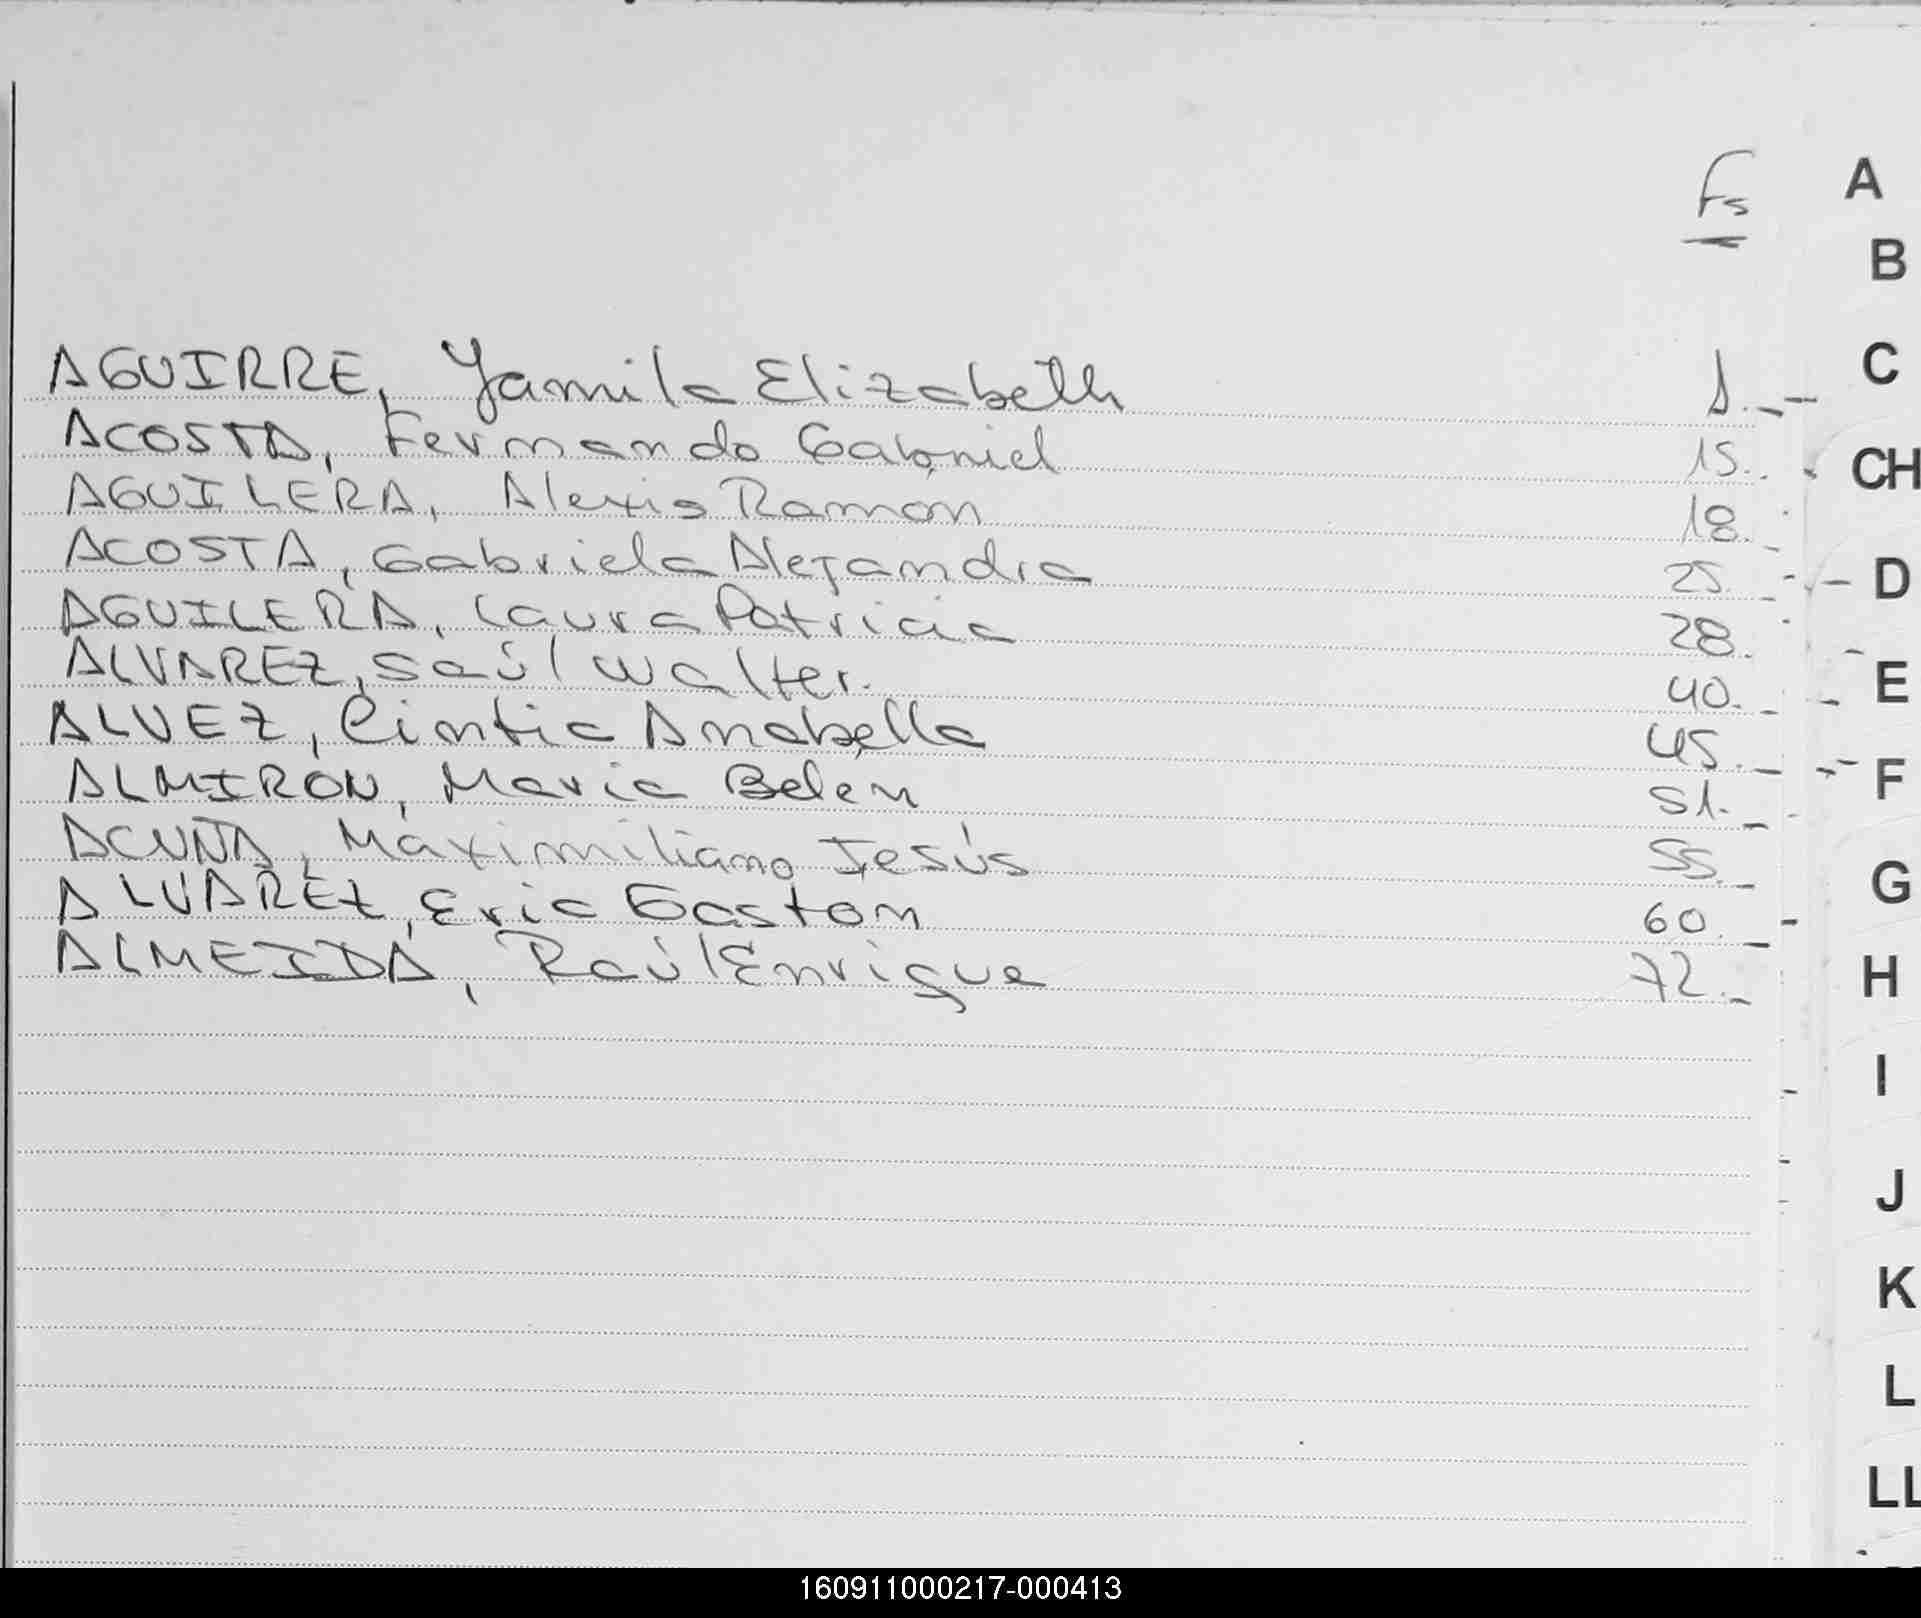 Fs
AGUIRRE, Yamila Elizabeth 1.-
ACOSTA, Fernando Gabriel 15.
AGUILERA, Alexis Ramon 18.-
ACOSTA, Gabriela Alejandra 25.-
AGUILERA, Laura Patricia 28.
ALVAREZ, Saúl Walter. 40.-
ALVEZ, Cintia Anabella 45.-
ALMIRÓN, Maria Belen 51.-
ACUÑA, Maximiliano Jesús 55.-
ALVAREZ, Eric Gaston 60.-
ALMEIDA, Raúl Enrique 72.-
A
B
C
CH
D
E
F
G
H
I
J
K
L
LL
160911000217-000413